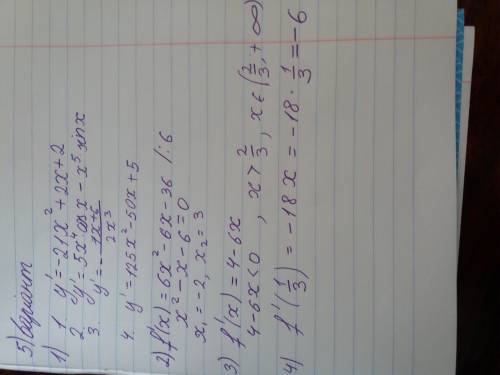 5) Варіант
1) 1. y' = -21x² + 2x + 2
2. y' = 5x⁴cosx - x⁵sinx
3. y' = -
2x³
4. y' = 125x² - 50x + 5
2) f'(x) = 6x² - 6x - 36 /:6
x² - x - 6 = 0
x₁ = -2, x₂ = 3
3) f'(x) = 4 - 6x
4 - 6x < 0 , x > 2/3, x ∈ (2/3, +∞)
4) f'(1/3) = -18x = -18 · 1/3 = -6